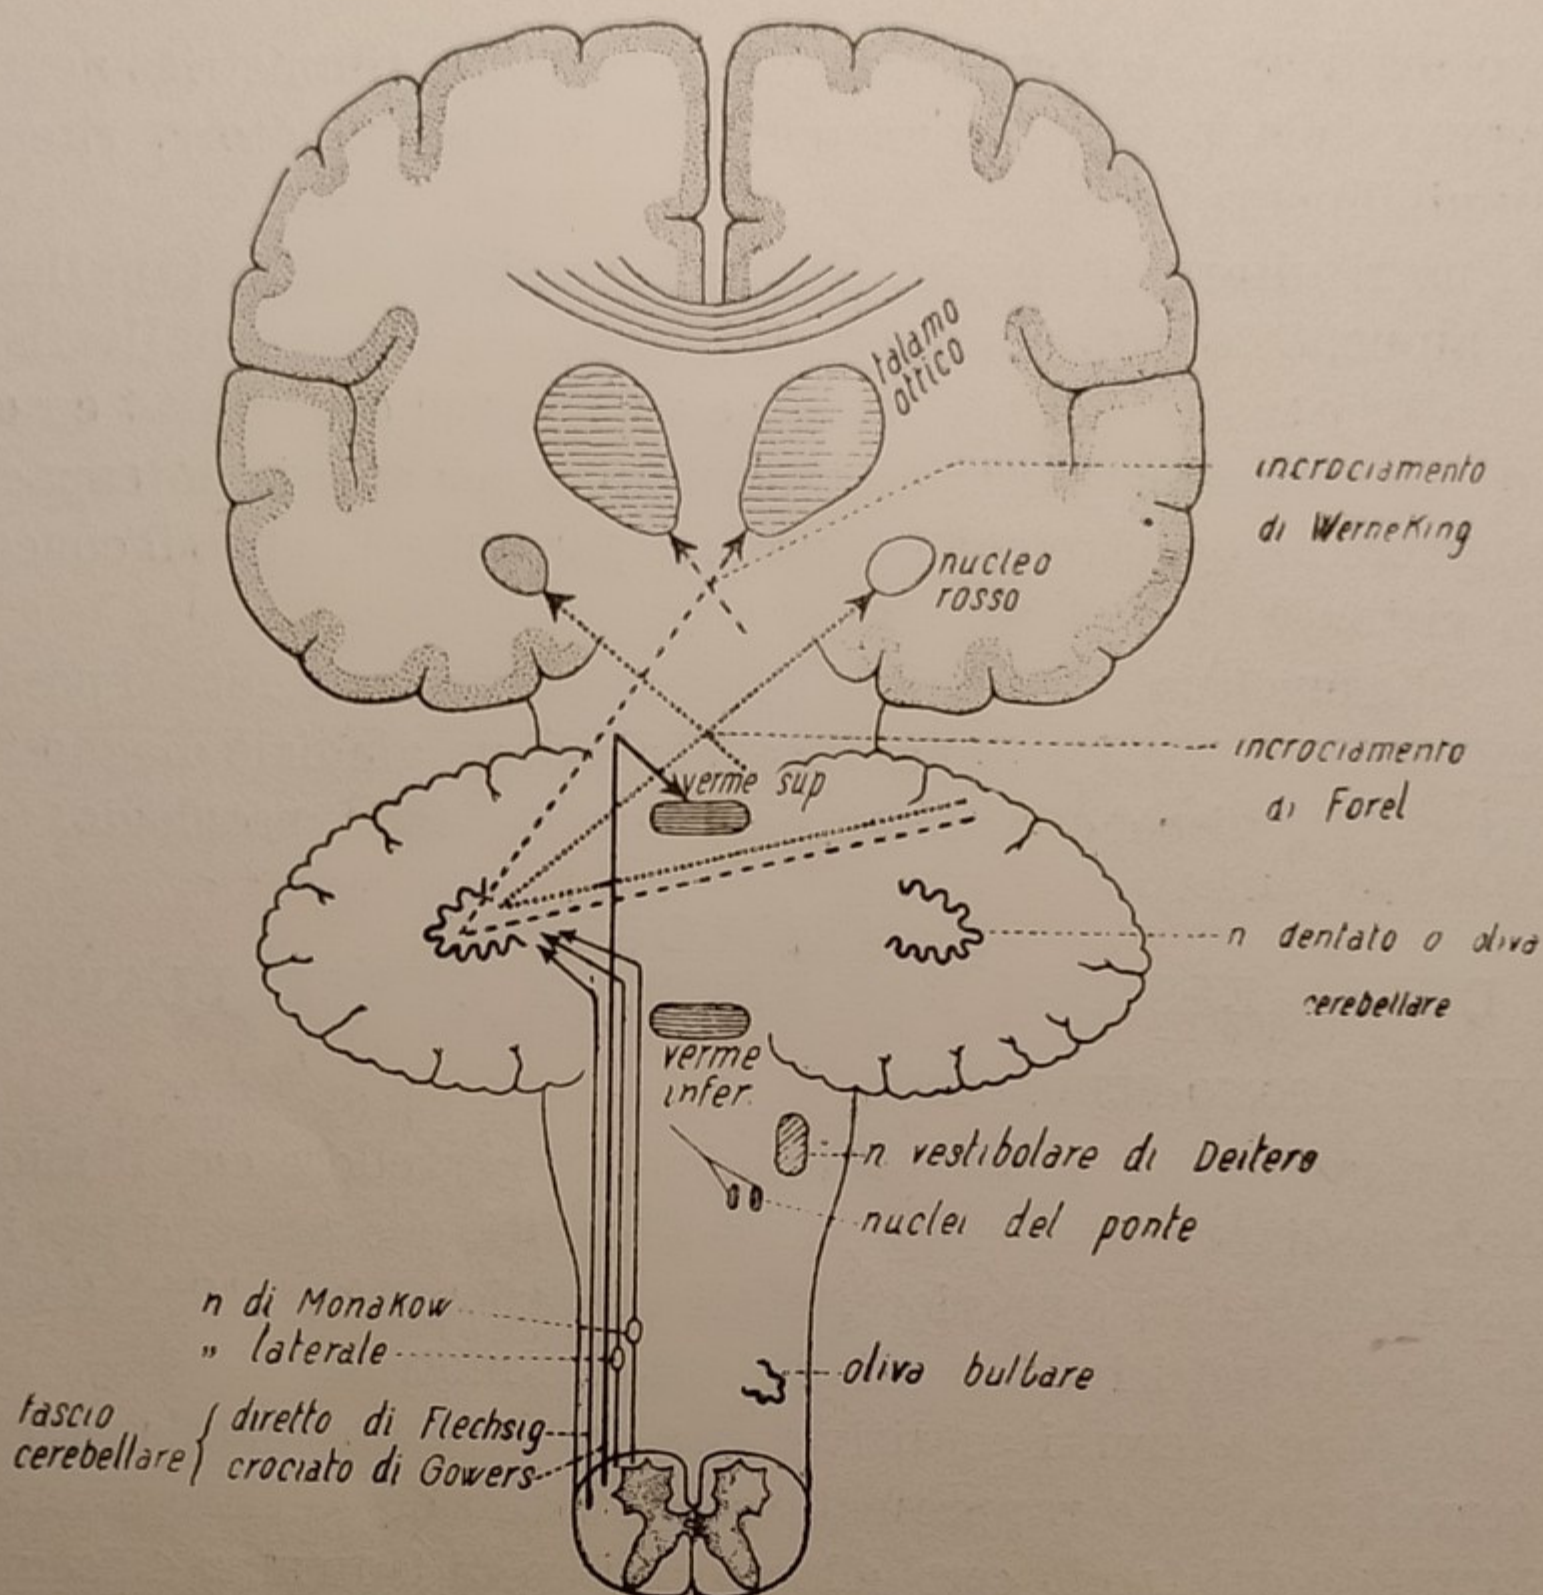 talamo
ottico
incrociamento
di WerneKing
nucleo
rosso
verme sup
incrociamento
di Forel
n dentato o oliva
cerebellare
verme
infer.
n vestibolare di Deiters
nuclei del ponte
n di Monakow
„ laterale
oliva bulbare
fascio
cerebellare
diretto di Flechsig
crociato di Gowers